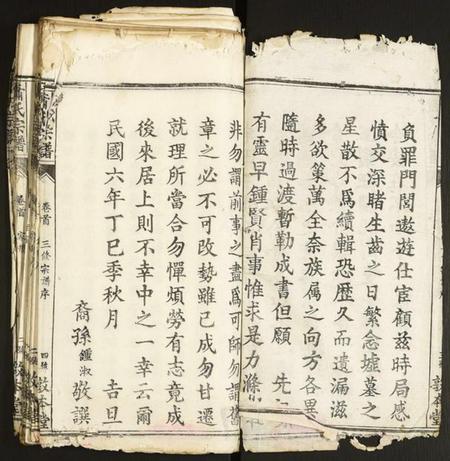 負罪門閭遨遊仕宦顧茲時局感
憤交深睹生齒之日繁念墟墓之
星散不爲續輯恐歷久而遺漏滋
多欲策萬全奈族属之向方各異
隨時過渡暫勒成書但願 先
有靈早鍾賢肖事惟求是力滌
非勿謂前事之盡爲可師勿謂舊
章之必不可改勢雖已成勿甘遷
就理所當合勿憚煩勞有志竟成
後來居上則不幸中之一幸云爾
民國六年丁巳季秋月 吉旦
裔孫鍾淑敬譔
蕭氏宗譜
卷首 三修宗譜序
四 敦本堂